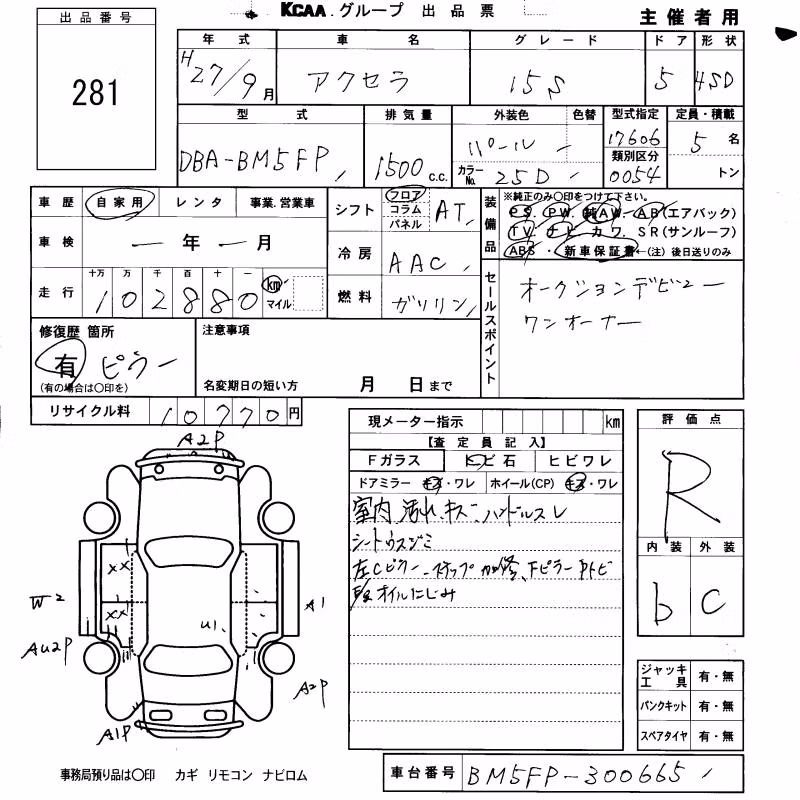 KCAA.グループ 出品票
主催者用
出品番号
281
年式 車名 グレード ドア 形状
H27/9月 アクセラ 15S 5 4SD
型式 排気量 外装色 色替 型式指定 定員・積載
DBA-BM5FP 1500c.c. パール 17606 5名
カラーNo. 25D 類別区分 0054 トン
車歴 自家用 レンタ 事業.営業車
シフト フロア コラム パネル AT
装備品 ※純正のみ〇印をつけて下さい。
PS. PW. 純AW. AB(エアバック)
TV. ナビ. カワ. SR(サンルーフ)
ABS・新車保証書←(注)後日送りのみ
車検 ー年ー月
冷房 AAC
走行 十万 万 千 百 十 一
102880 km マイル
燃料 ガソリン
セールスポイント
オークションデビュー
ワンオーナー
修復歴 箇所
有 ピラー
(有の場合は〇印を)
注意事項
名変期日の短い方 月 日まで
リサイクル料 10770円
現メーター指示 km
【査定員記入】
Fガラス トビ石 ヒビワレ
ドアミラー キズ・ワレ ホイール(CP) キズ・ワレ
室内 汚れ、キズ ハンドルスレ
シートウスジミ
オイルにじみ
評価点
R
内装 外装
b C
A2P
W2
AU2P
A1P
U1
A1
A2P
XX
XX
ジャッキ工具 有・無
パンクキット 有・無
スペアタイヤ 有・無
事務局預り品は〇印 カギ リモコン ナビロム
車台番号 BM5FP-300665